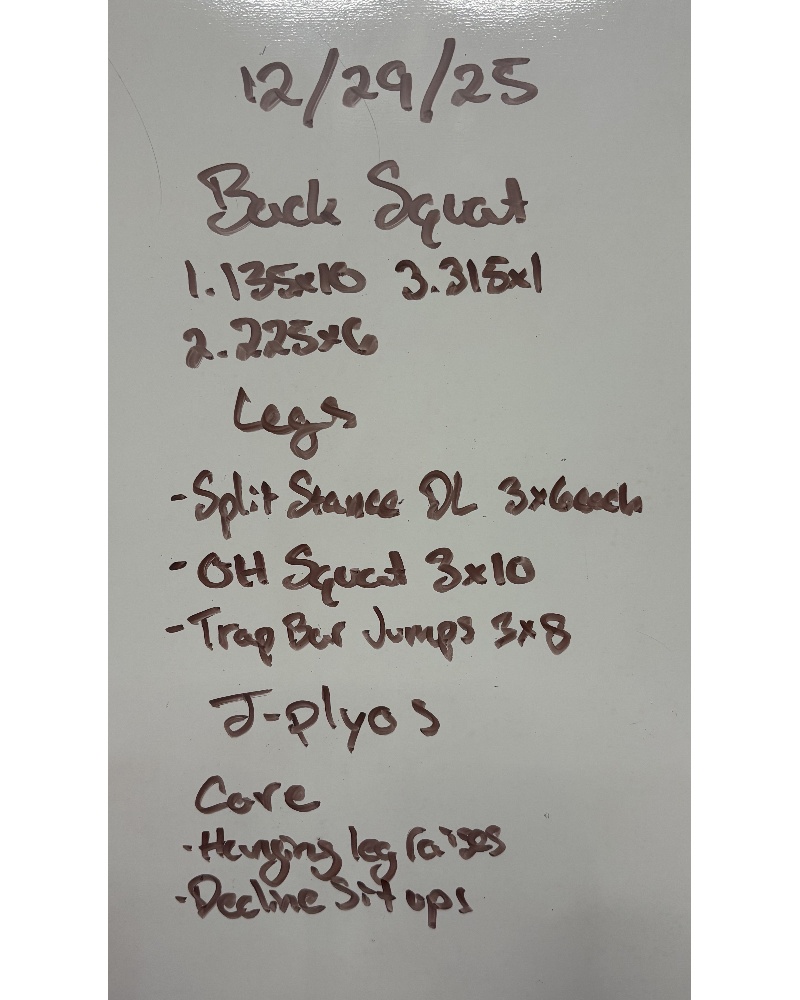 12/29/25
Back Squat
1.135x10 3.315x1
2.225x6
Legs
-Split Stance DL 3x6each
-OH Squat 3x10
-Trap Bar Jumps 3x8
J-Plyos
Core
-Hanging leg raises
-Decline Sit ups